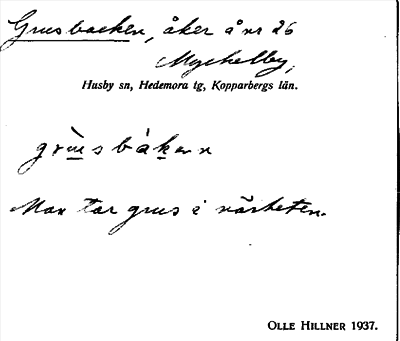 Grusbacken, åker å nr 26
Myckelby,
Husby sn, Hedemora tg, Kopparbergs län.
grùsbákenn
Man tar grus i närheten.
OLLE HILLNER 1937.